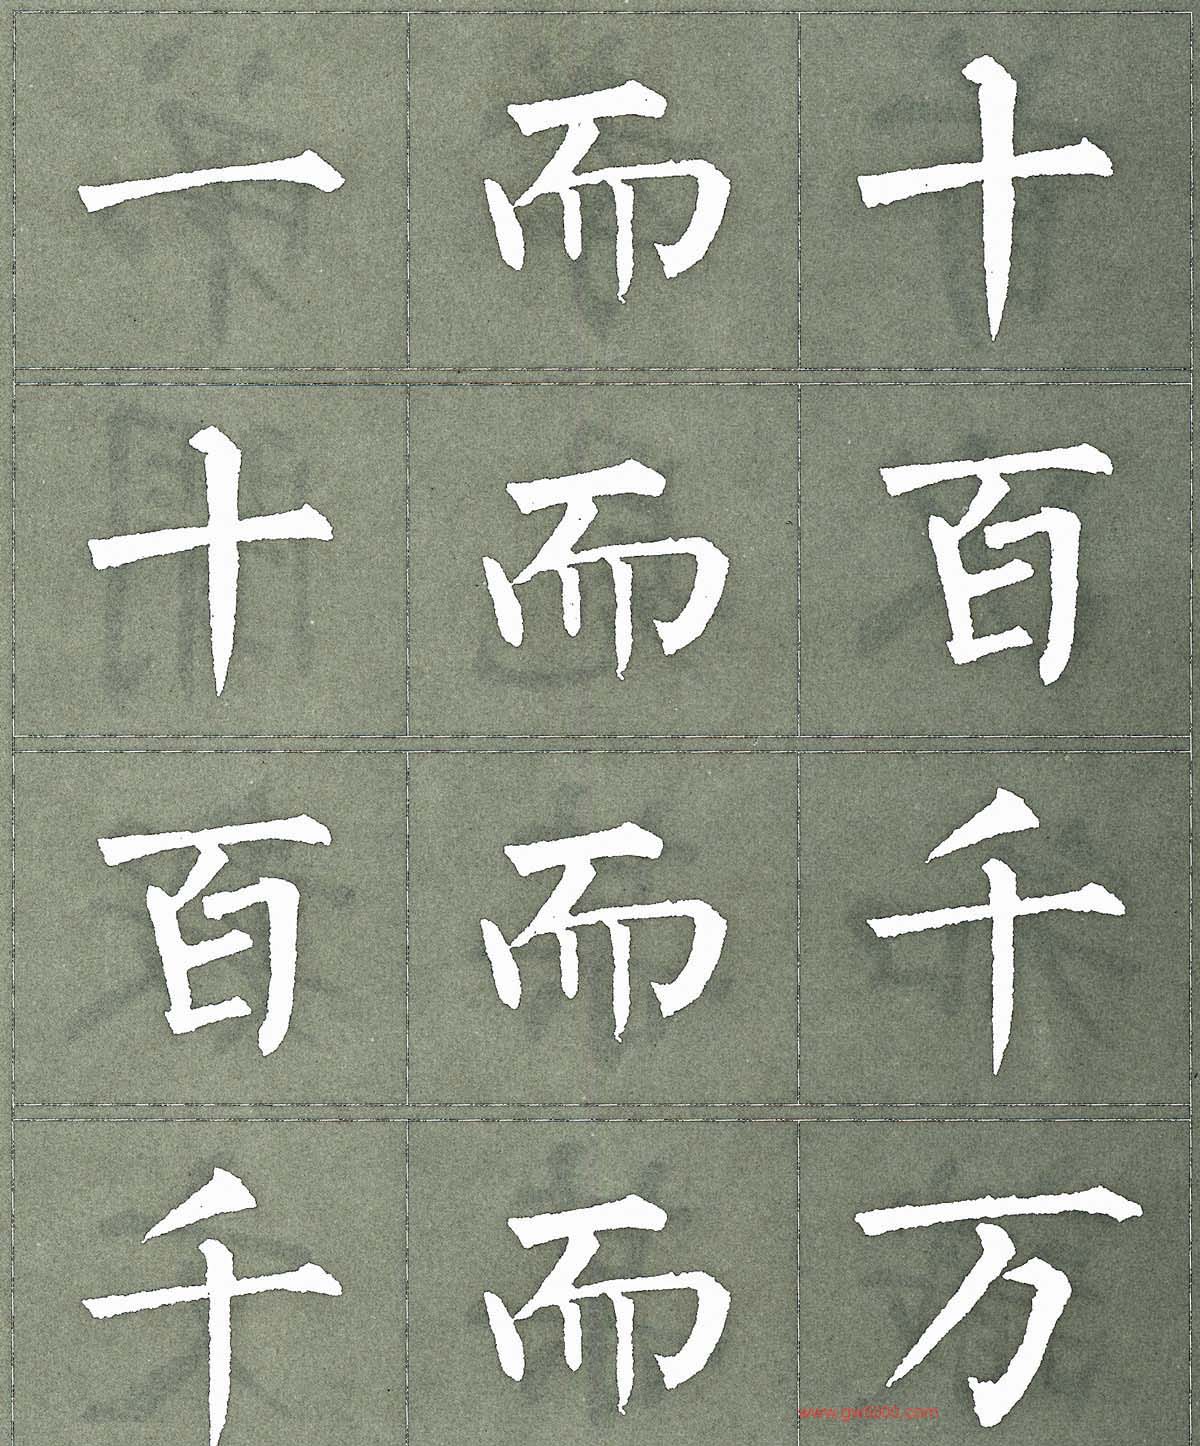 一而十
十而百
百而千
千而万
www.gw8800.com